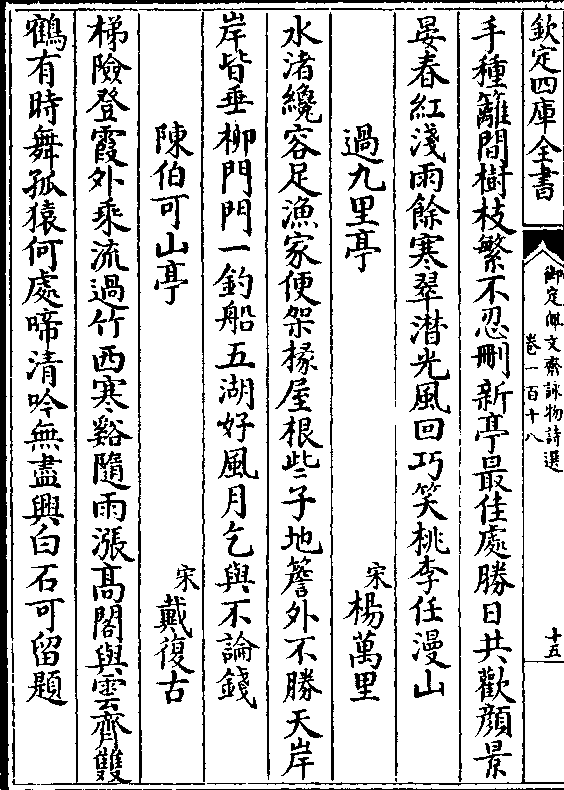 欽定四庫全書
御定佩文齋詠物詩選
卷一百十八
十五
手種籬間樹枝繁不忍刪新亭最佳處勝日共歡顏景
晏春紅淺雨餘寒翠潛光風回巧笑桃李任漫山
過九里亭
宋楊萬里
水渚纔容足漁家便架椽屋根些子地簷外不勝天岸
岸皆垂柳門門一釣船五湖好風月乞與不論錢
陳伯可山亭
宋戴復古
梯險登霞外乘流過竹西寒谿隨雨漲高閣與雲齊雙
鶴有時舞孤猿何處啼清吟無盡興白石可留題